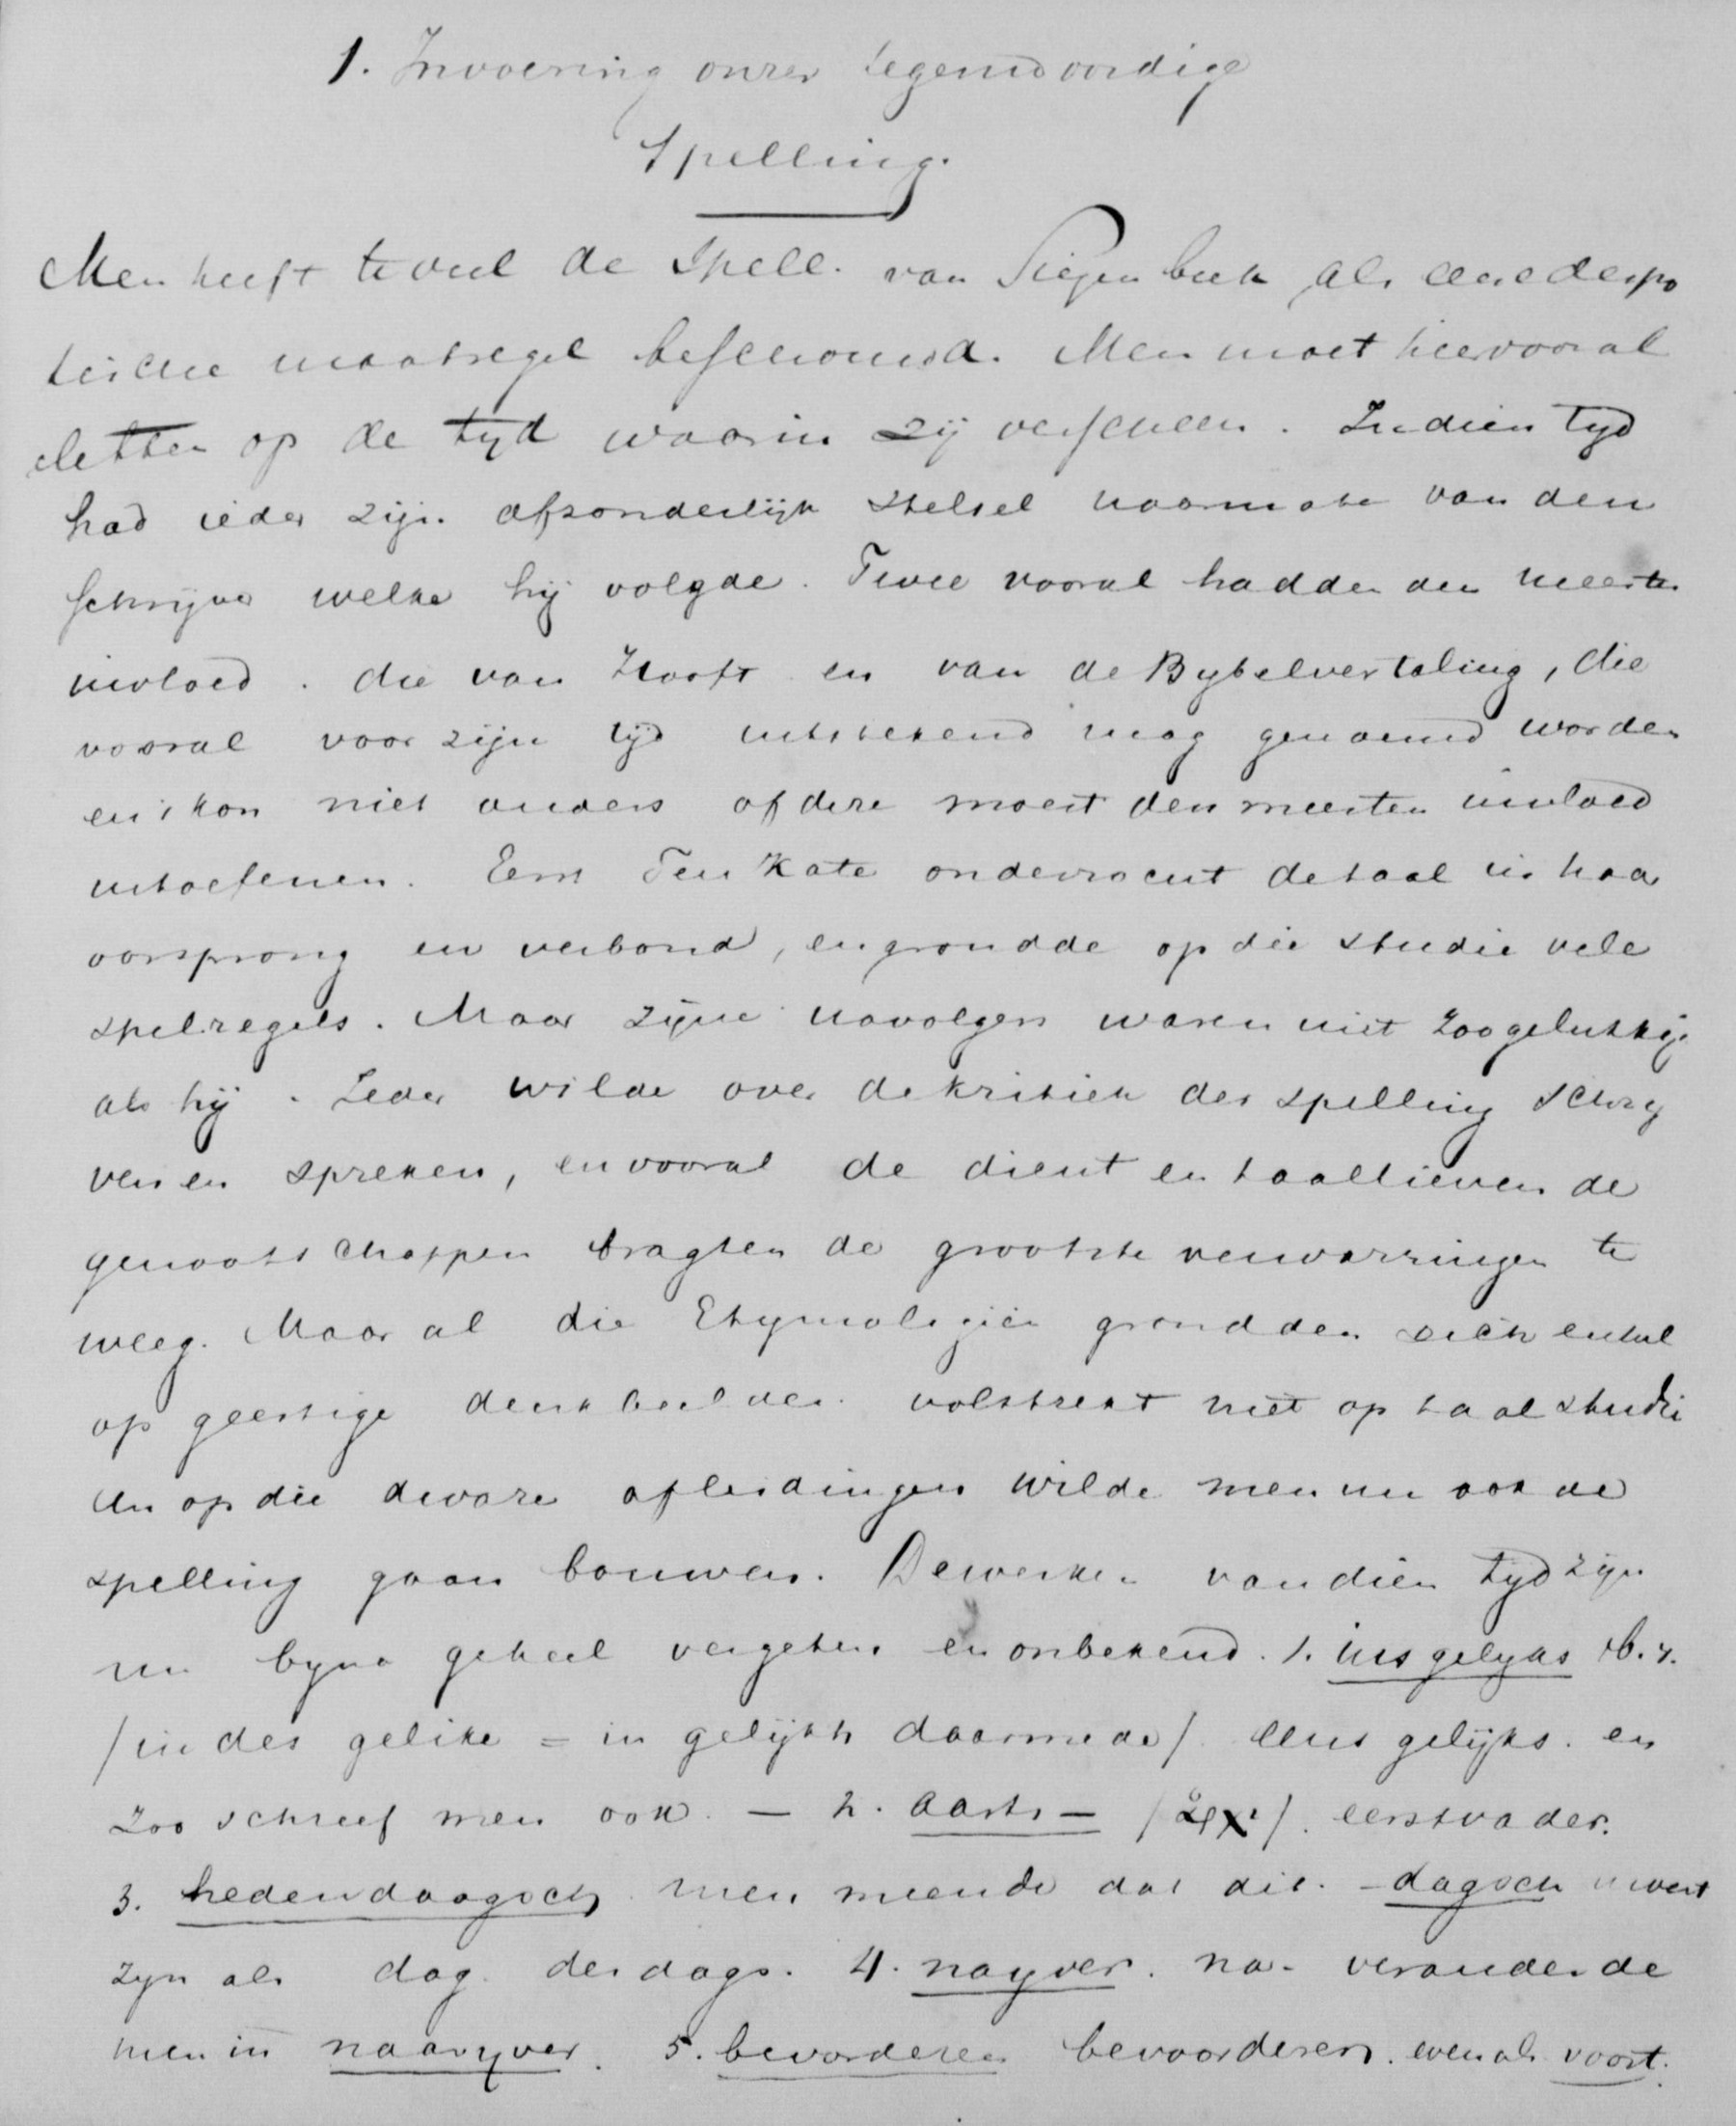 1. Invoering onzer tegenwoordige
Spelling.
Men heeft te veel de Spell. van Siegenbeek als eene despo
tische maatregel beschouwd. Men moet hier vooral
letten op de tyd waarin zij verscheen. In dien tyd
had ieder zijn afzonderlijk stelsel naarmate van den
schrijver welke hij volgde. Twee vooral hadden den meesten
invloed. die van Hooft en van de Bybelvertaling, die
vooral voor zijn tijd uitstekend mag genoemd worden
en 't kon niet anders of deze moest den meesten invloed
uitoefenen. Eerst Ten Kate onderzocht de taal in haar
oorsprong en verband, en grondde op die studie vele
spelregels. Maar zijne navolgers waren niet zoo gelukkig
als hij. Ieder wilde over de kritiek der spelling schry
ven en spreken, en vooral de dicht en taallievende
genootschappen bragten de grootste verwarringen te
weeg. Maar al die Etymologiën grondden zich enkel
op geestige denkbeelden. volstrekt niet op taalstudie
En op die dwaze afleidingen wilde men nu ook de
spelling gaan bouwen. De werken van dien tyd zijn
nu byna geheel vergeten en onbekend. 1. insgelyks b.v.
/in des gelike = in gelijkh daarmede/ eens gelijks. en
zoo schreef men ook. — 2. aarts — /ἀρχι/. eerstvader.
3. hedendaagsch men meende dat dit. -dagsch
zyn als dag des daags. 4. nayver. na- veranderde
men in naaryver. 5. bevorderen bevoorderen. even als voort.